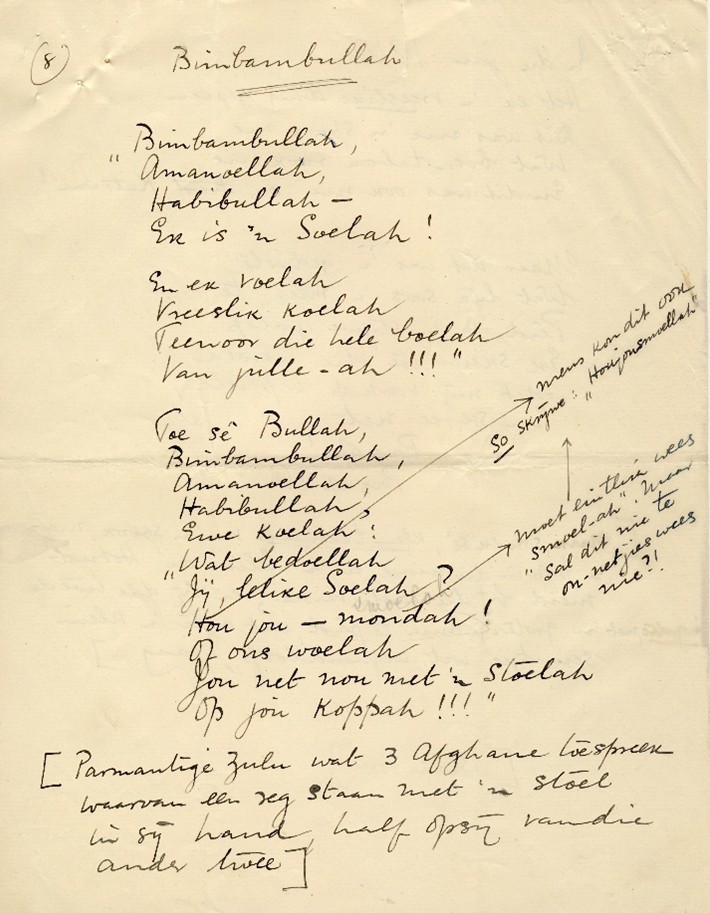 8
Bimbambullah
"Bimbambullah,
Amanoellah,
Habibullah —
Ek is 'n Soelah!
En ek voelah
Vreeslik koelah
Teenoor die hele boelah
Van jülle-ah!!!"
Toe sê Bullah,
Bimbambullah,
Amanoellah,
Habibullah,
Ewe koelah:
"Wat bedoellah
Jÿ, lelike Soelah?
Hou jou — mondah!
Of ons woelah
Jou net nou met 'n Stoelah
Op jou Koppah!!!"
mens kon dit ook
So skrÿwe: "Houjousmoellah"
moet eintlik wees
"smoel-ah". Maar
sal dit nie te
on-netjies wees
nie?!
[Parmantige Zulu wat 3 Afghane toespreek
waarvan een reg staan met 'n stoel
in sÿ hand, half opsÿ van die
ander twee]